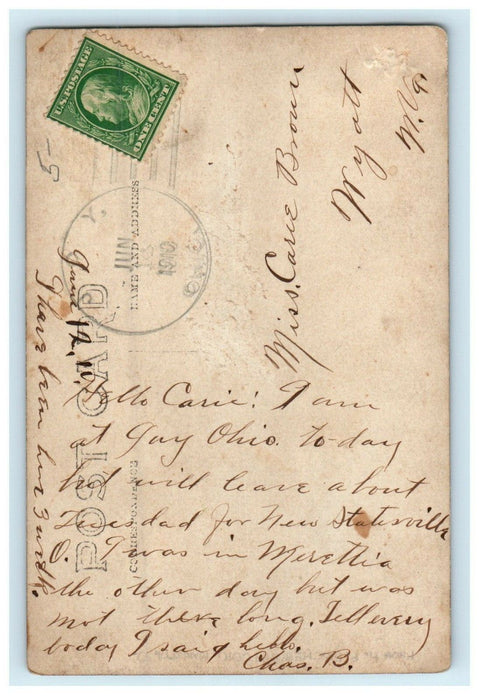 U.S. POSTAGE
ONE CENT
5-
JUN
1910
POST CARD
NAME AND ADDRESS
CORRESPONDENCE
Miss. Carie Brown
Wyatt
W.Va.
June 12, 10.
Hello Carie! I am
at Guy Ohio. to-day
but will leave about
Tuesdad for New Statesville
O. I was in Merettia
the other day but was
not there long. Tell every
body I said hello.
Chas. B.
I have been here 3 weeks.